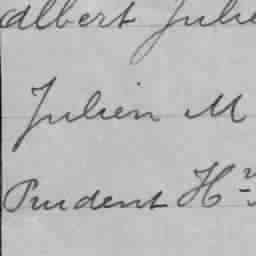 Albert Julie
Julien M
Prudent Hry